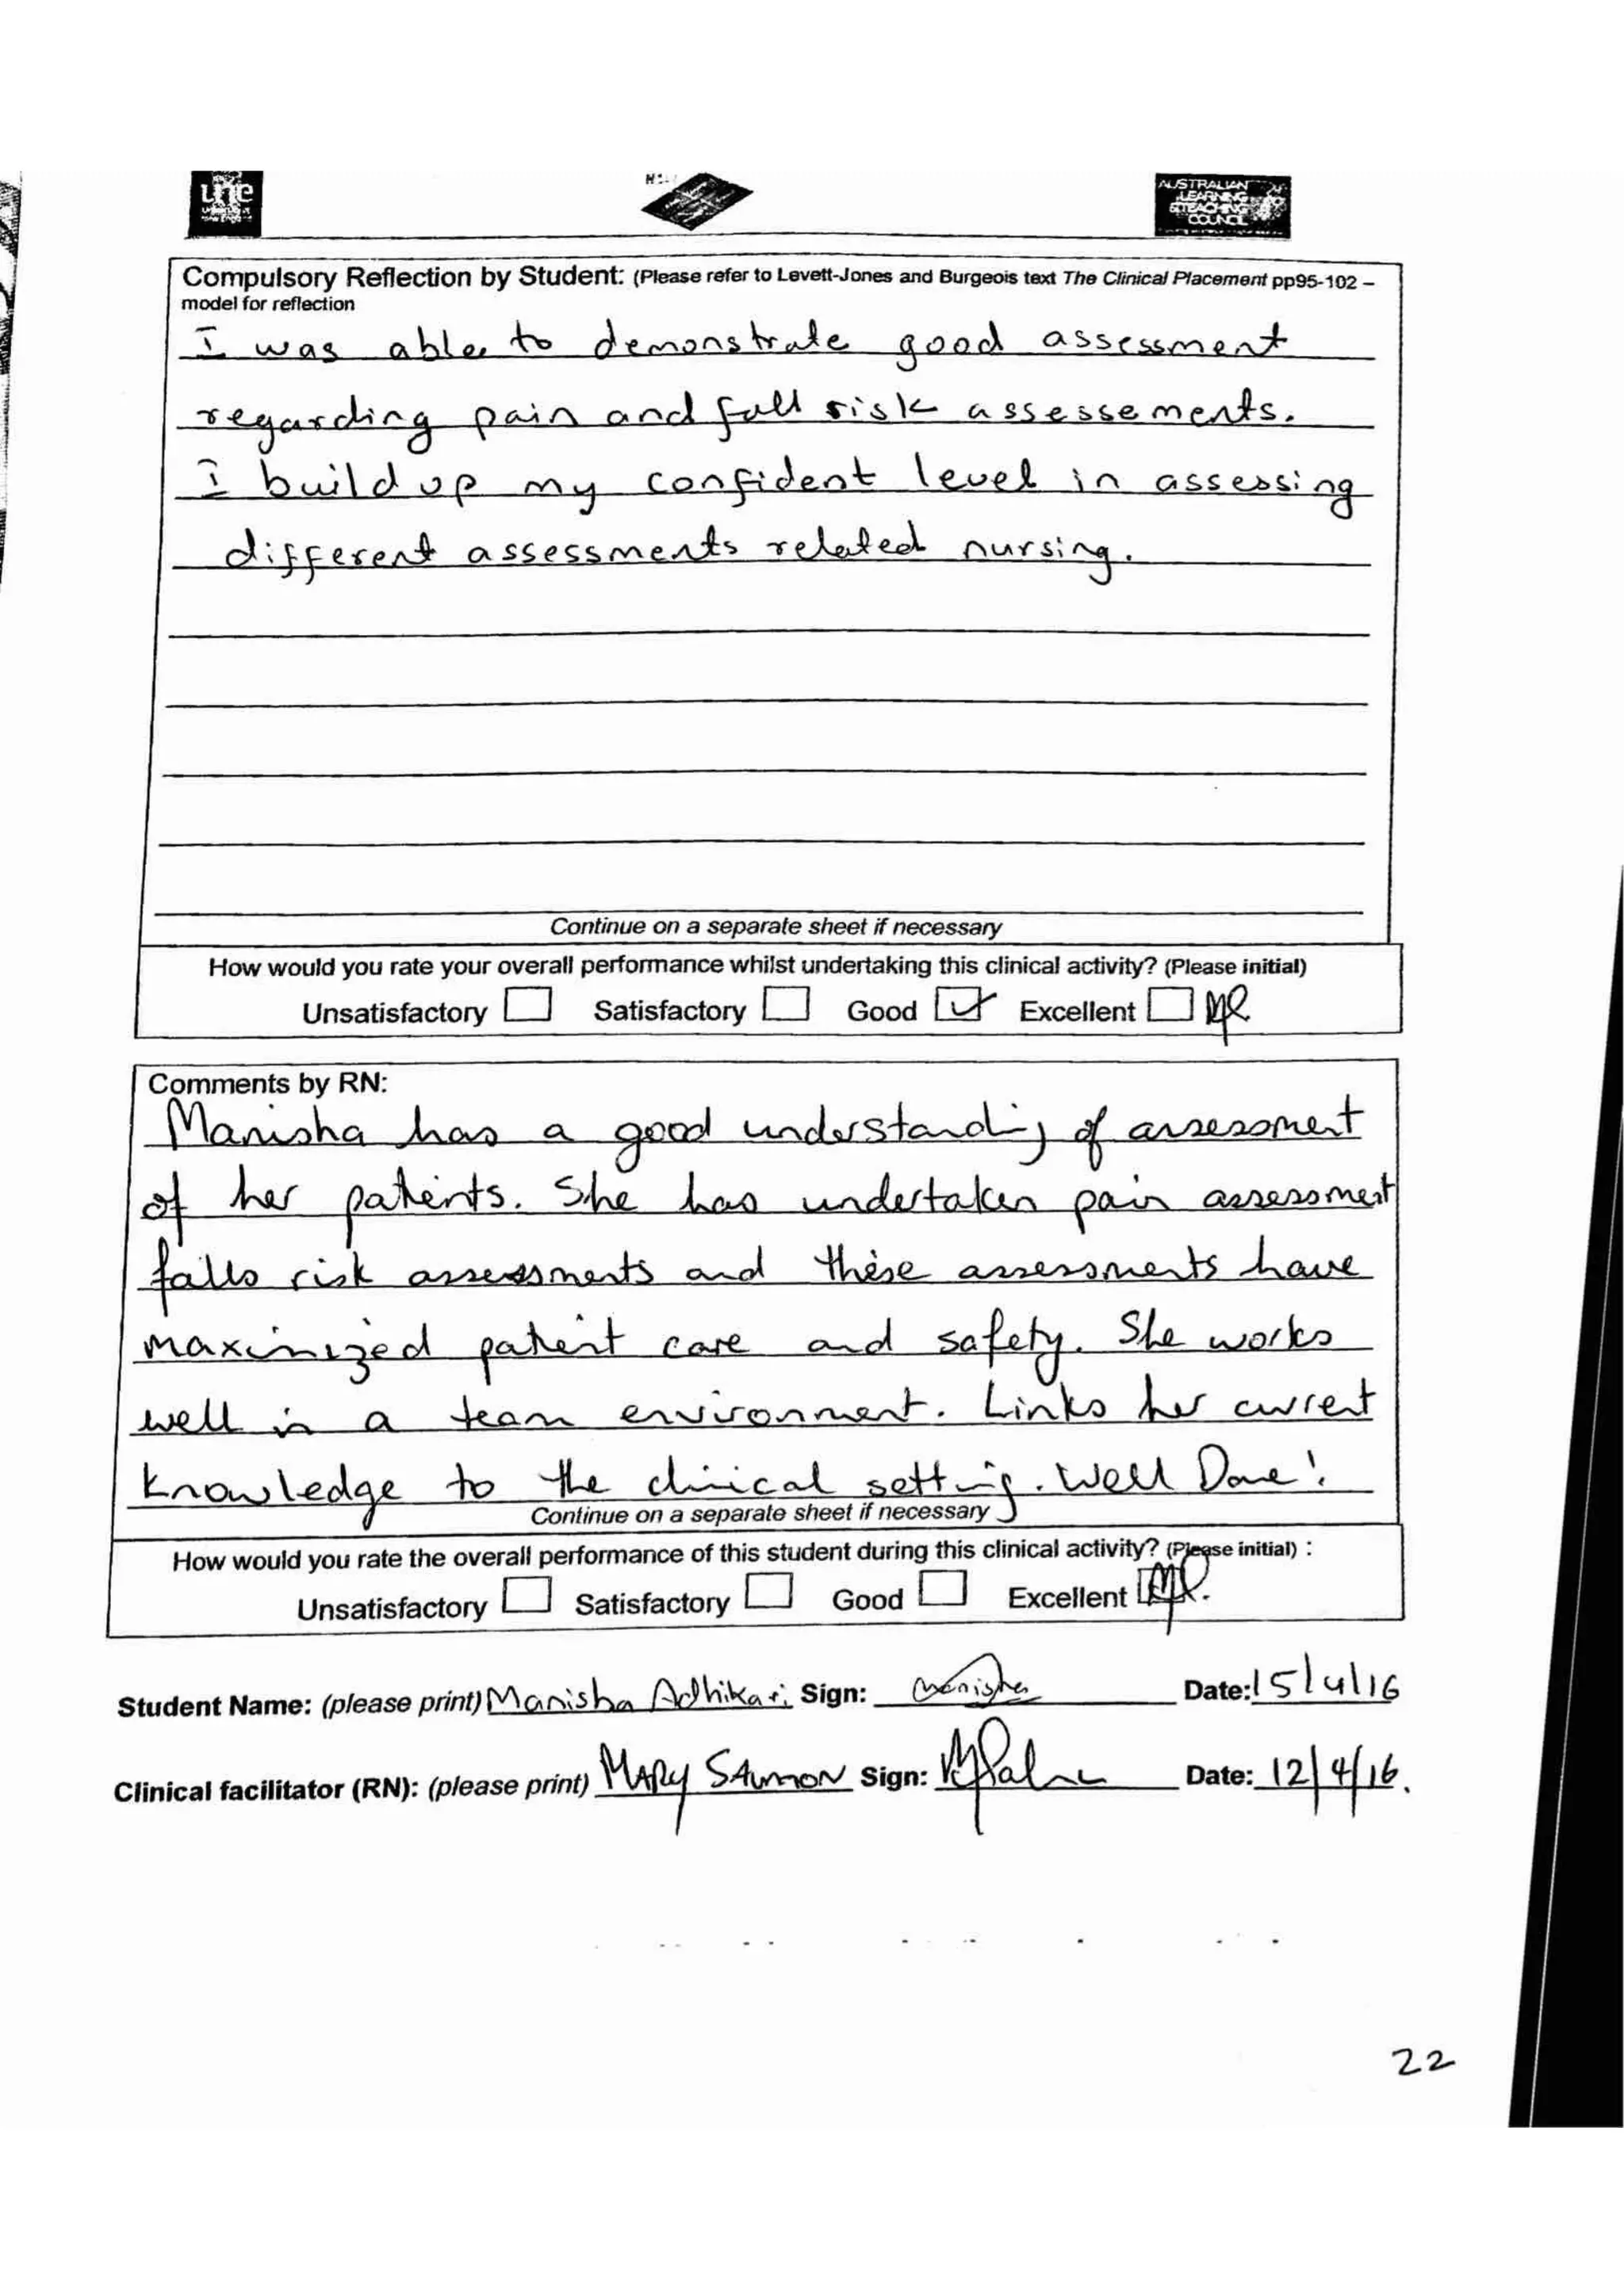 une
AUSTRALIAN
LEARNING
&TEACHING
COUNCIL
Compulsory Reflection by Student: (Please refer to Levett-Jones and Burgeois text The Clinical Placement pp95-102 –
model for reflection
I was able to demonstrate good assessment
regarding pain and fall risk assessements.
I build up my confident level in assessing
different assessments related nursing.
Continue on a separate sheet if necessary
How would you rate your overall performance whilst undertaking this clinical activity? (Please initial)
Unsatisfactory Satisfactory Good Excellent
Comments by RN:
Manisha has a good understanding of assessment
of her patients. She has undertaken pain assessment
falls risk assessments and these assessments have
maximized patient care and safety. She works
well in a team environment. Links her current
knowledge to the clinical setting. Well Done!
Continue on a separate sheet if necessary
How would you rate the overall performance of this student during this clinical activity? (Please initial) :
Unsatisfactory Satisfactory Good Excellent
Student Name: (please print) Manisha Adhikari Sign: Manisha Date: 15/4/16
Clinical facilitator (RN): (please print) MARY SALMON Sign: Date: 12/4/16.
22